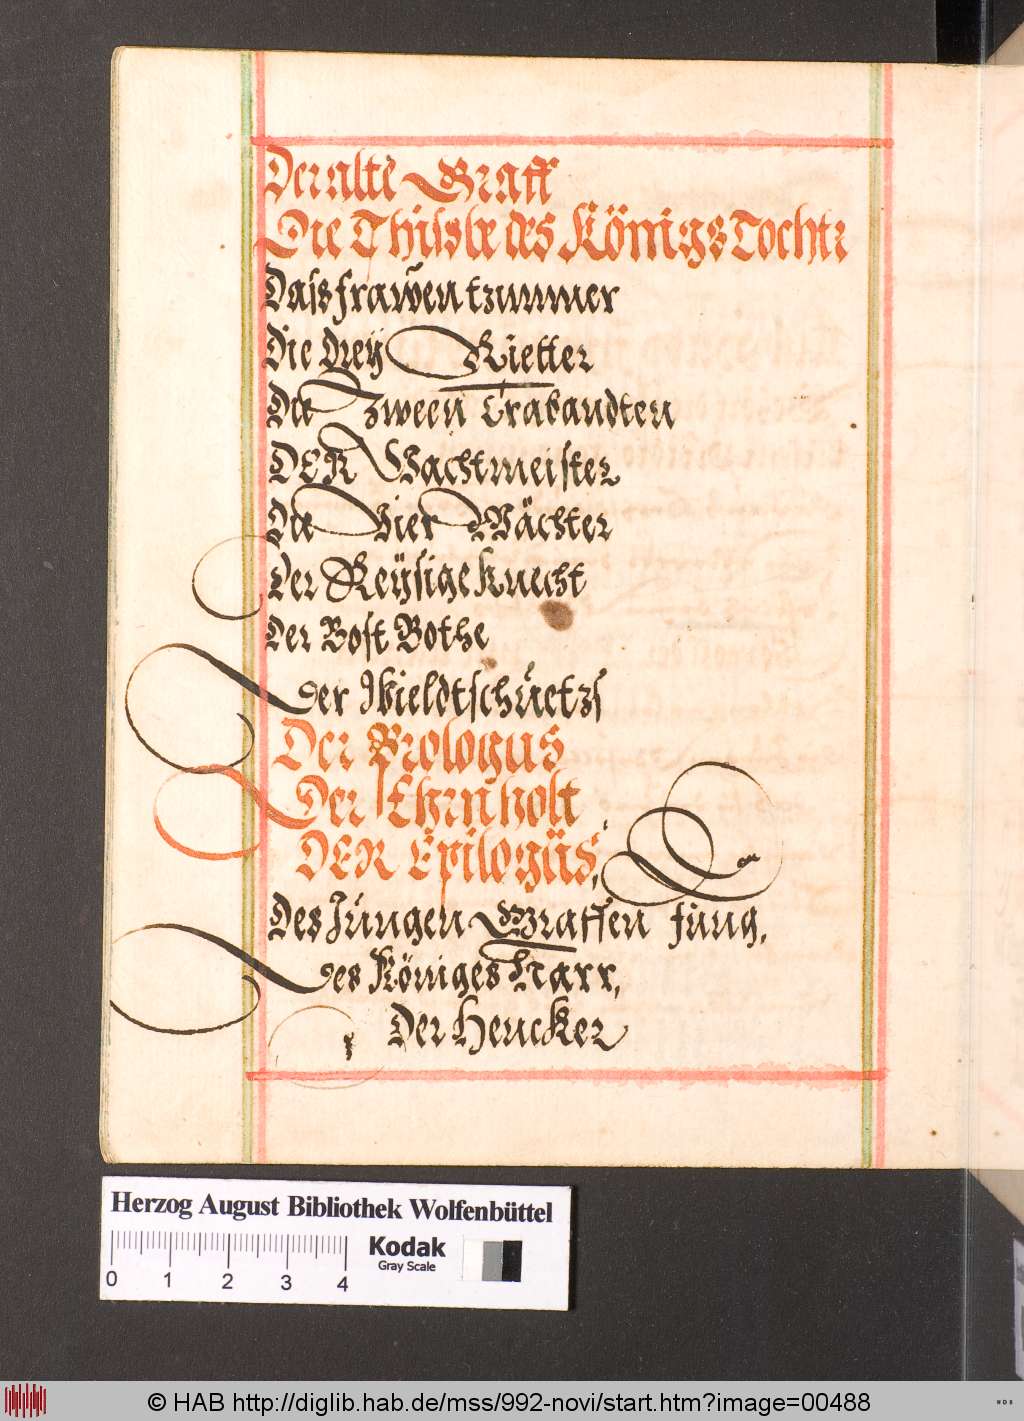 Der alte Graff
Die Thissbe des Königs Tochtr
Dass frawen tzummer
Die Dreÿ Rietter
Die Zween Trabandten
DER Wachtmeister
Die Vier Wächter
Der Reÿsige Knecht
Der Post Bothe
Der Wieldtschüetzs
Der Prologus
Der Ehrnholt
DER Epilogüs,
Des Jungen Graffen Jüng,
Des Königes Narr,
Der Hencker
Herzog August Bibliothek Wolfenbüttel
Kodak
Gray Scale
0 1 2 3 4
© HAB http://diglib.hab.de/mss/992-novi/start.htm?image=00488